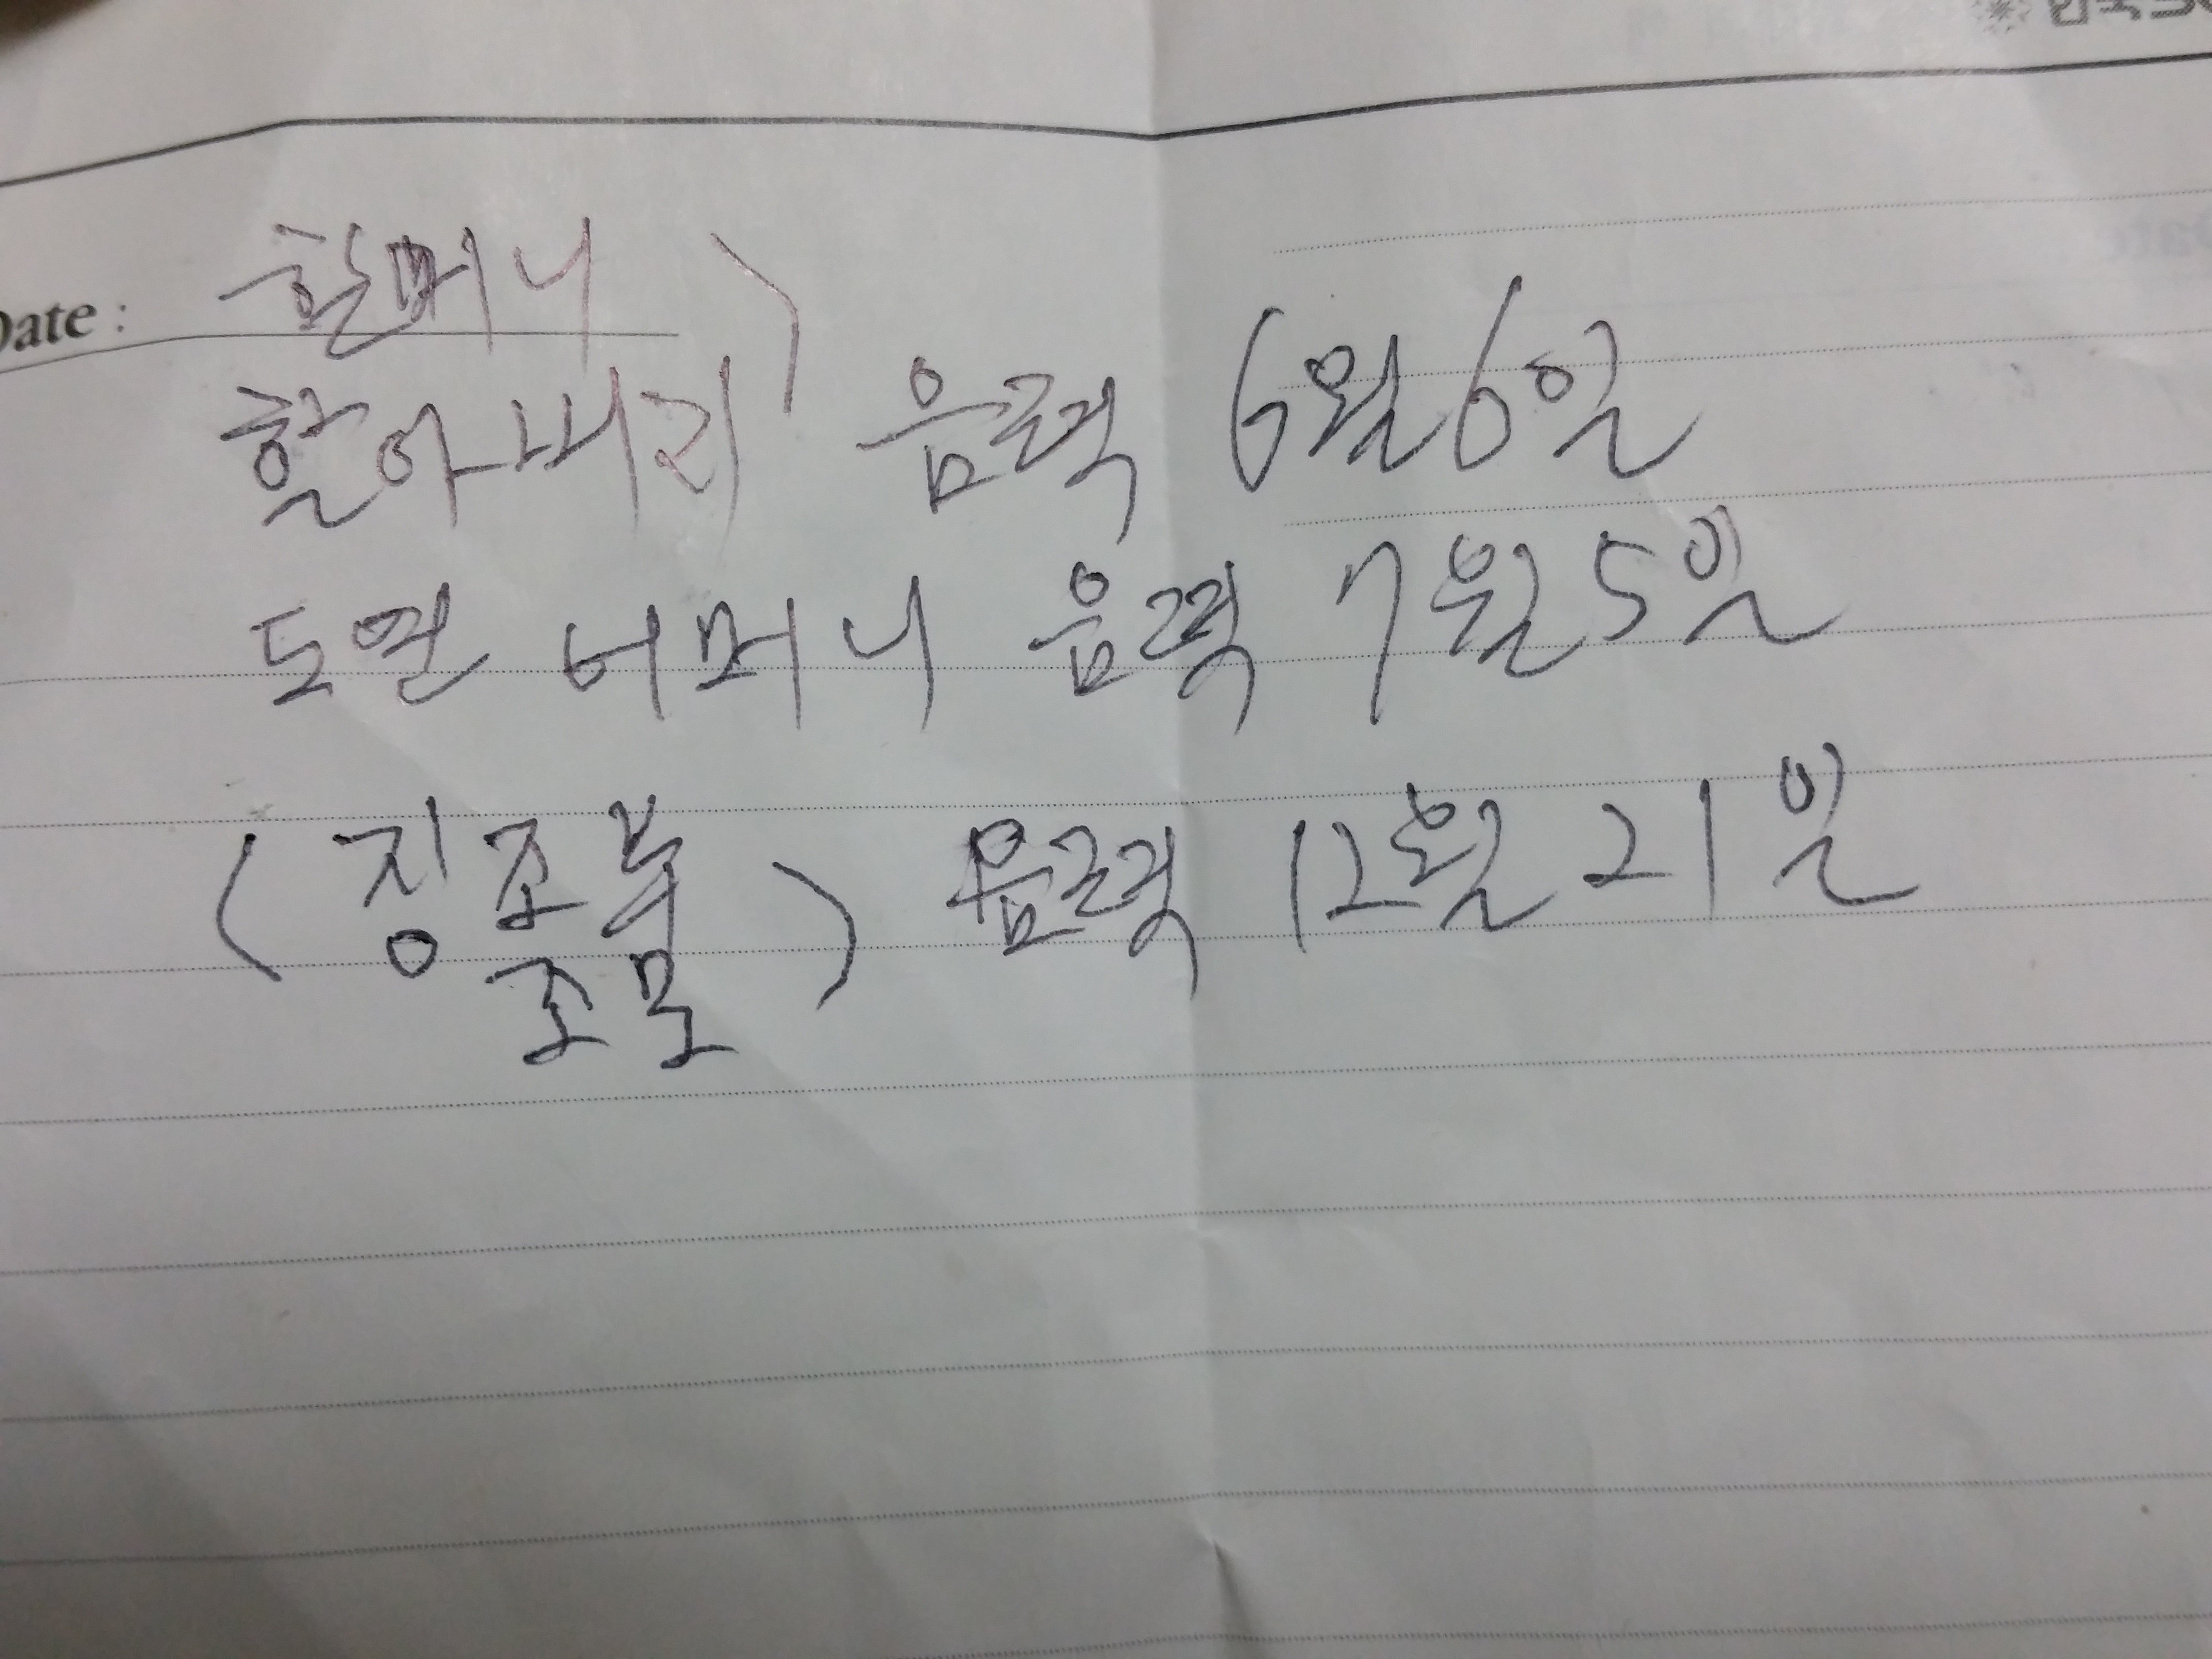 Date :
할머니 )
할아버지 음력 6월6일
도연 어머니 음력 7월5일
(징조부) 음력 12월 21일
조모